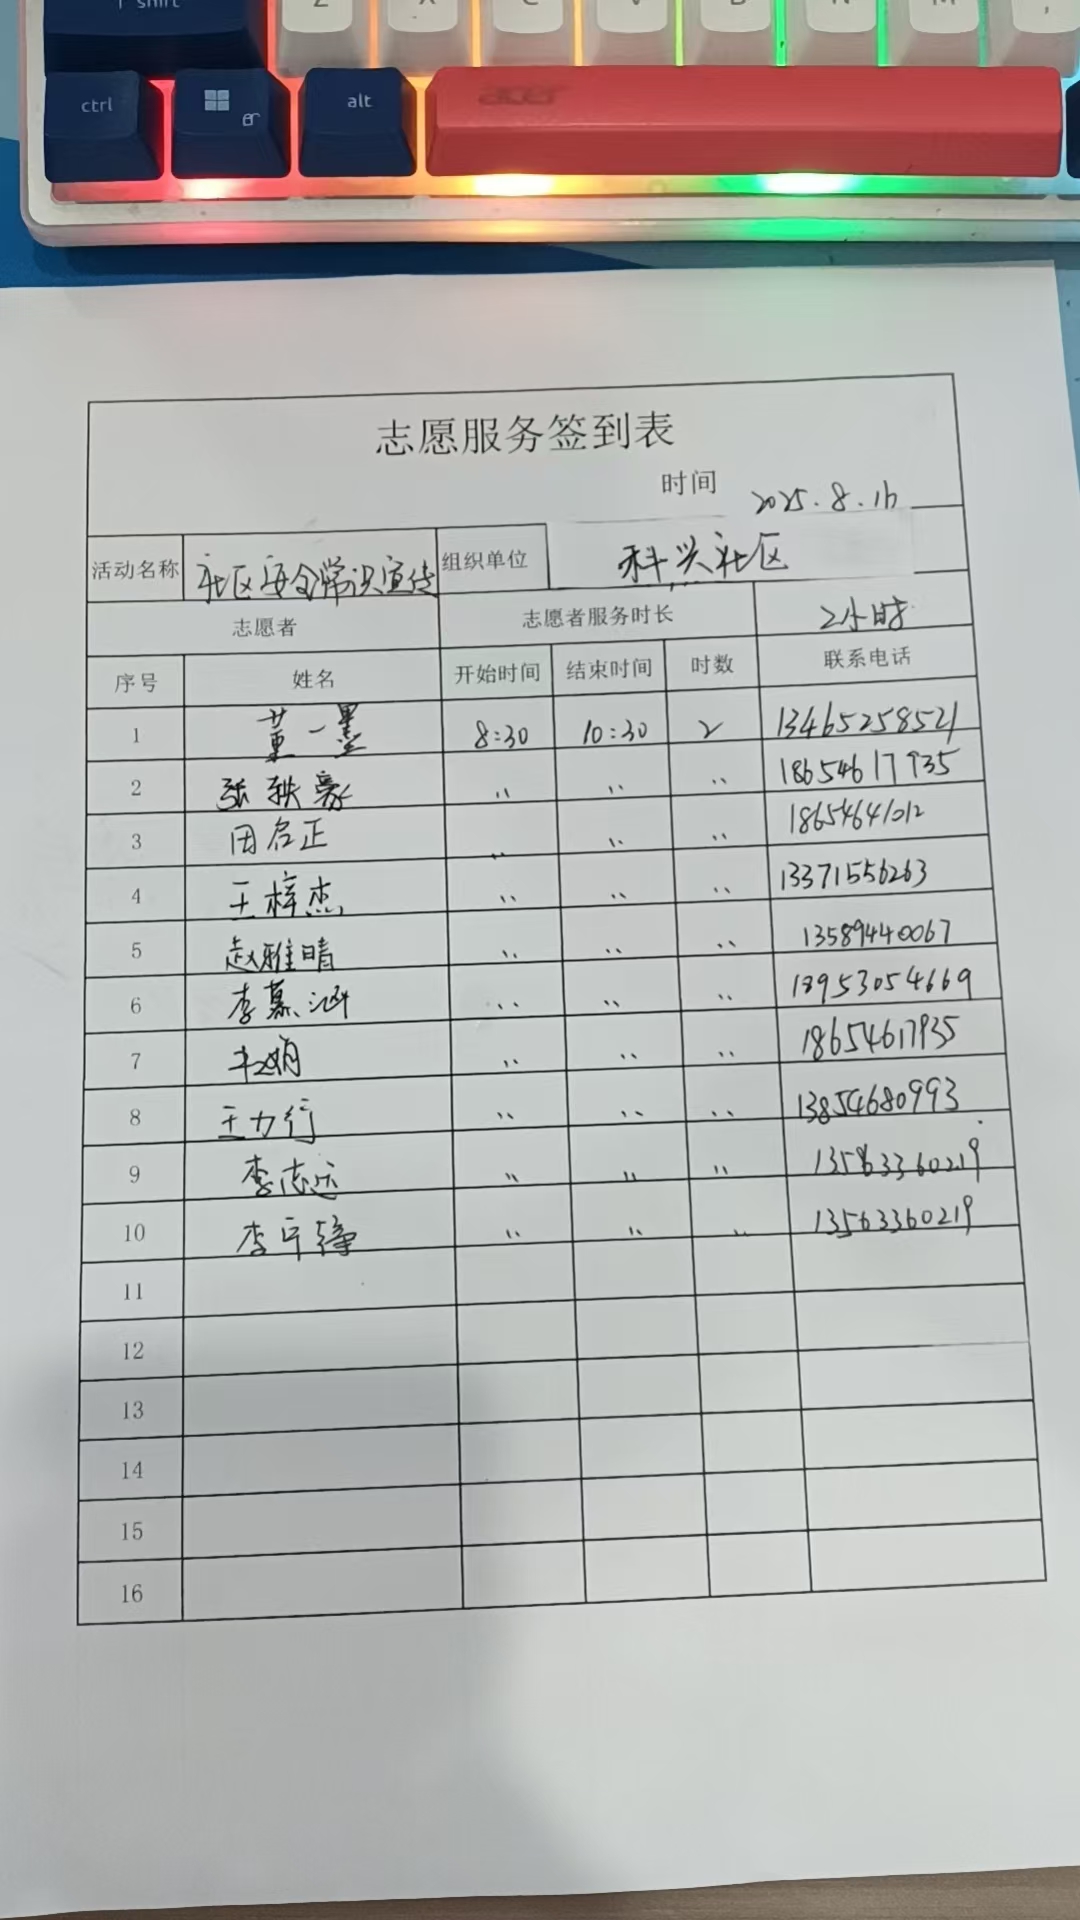 shift Z X C V B N M ,
ctrl alt
acer
志愿服务签到表
时间 2025.8.16
活动名称 社区安全常识宣传 组织单位 科兴社区
志愿者 志愿者服务时长 2小时
序号 姓名 开始时间 结束时间 时数 联系电话
1 董一墨 8:30 10:30 2 13465258521
2 张轶豪 〃 〃 〃 18654617935
3 田启正 〃 〃 〃 18654641012
4 王梓杰 〃 〃 〃 13371556263
5 赵雅晴 〃 〃 〃 13589440067
6 李慕涵 〃 〃 〃 18953054669
7 〃 〃 〃 18654617935
8 王力行 〃 〃 〃 13854680993
9 李志远 〃 〃 〃 13563360219
10 〃 〃 〃 13563360219
11
12
13
14
15
16